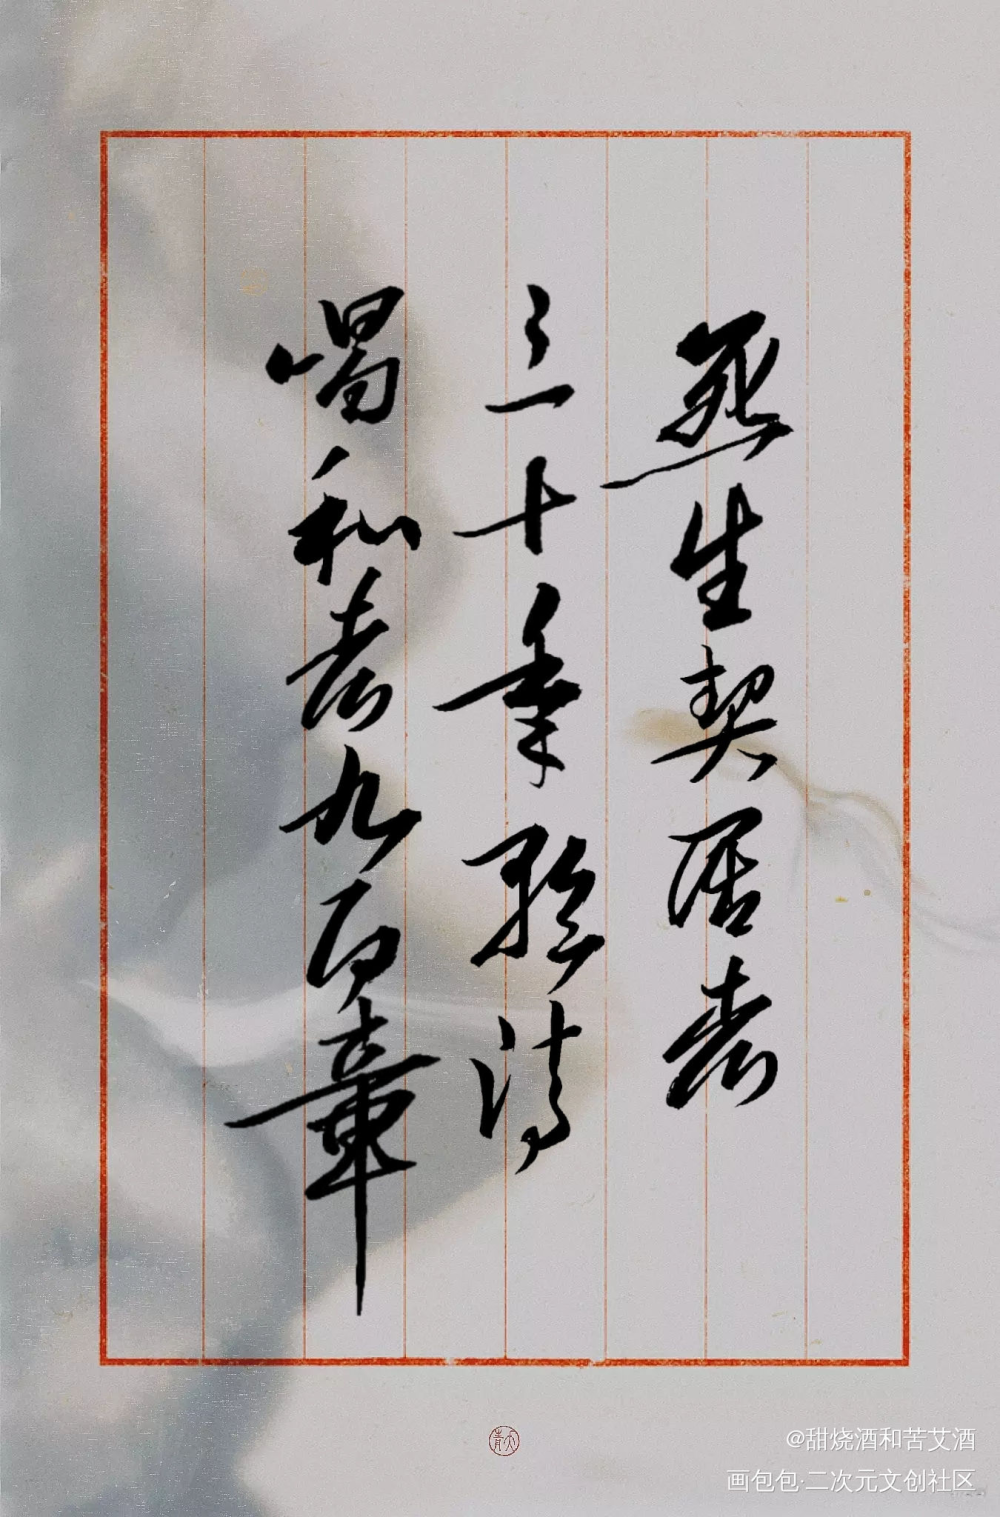 死生契阔者
三十年歌诗
唱和者九百章
@甜烧酒和苦艾酒
画包包·二次元文创社区